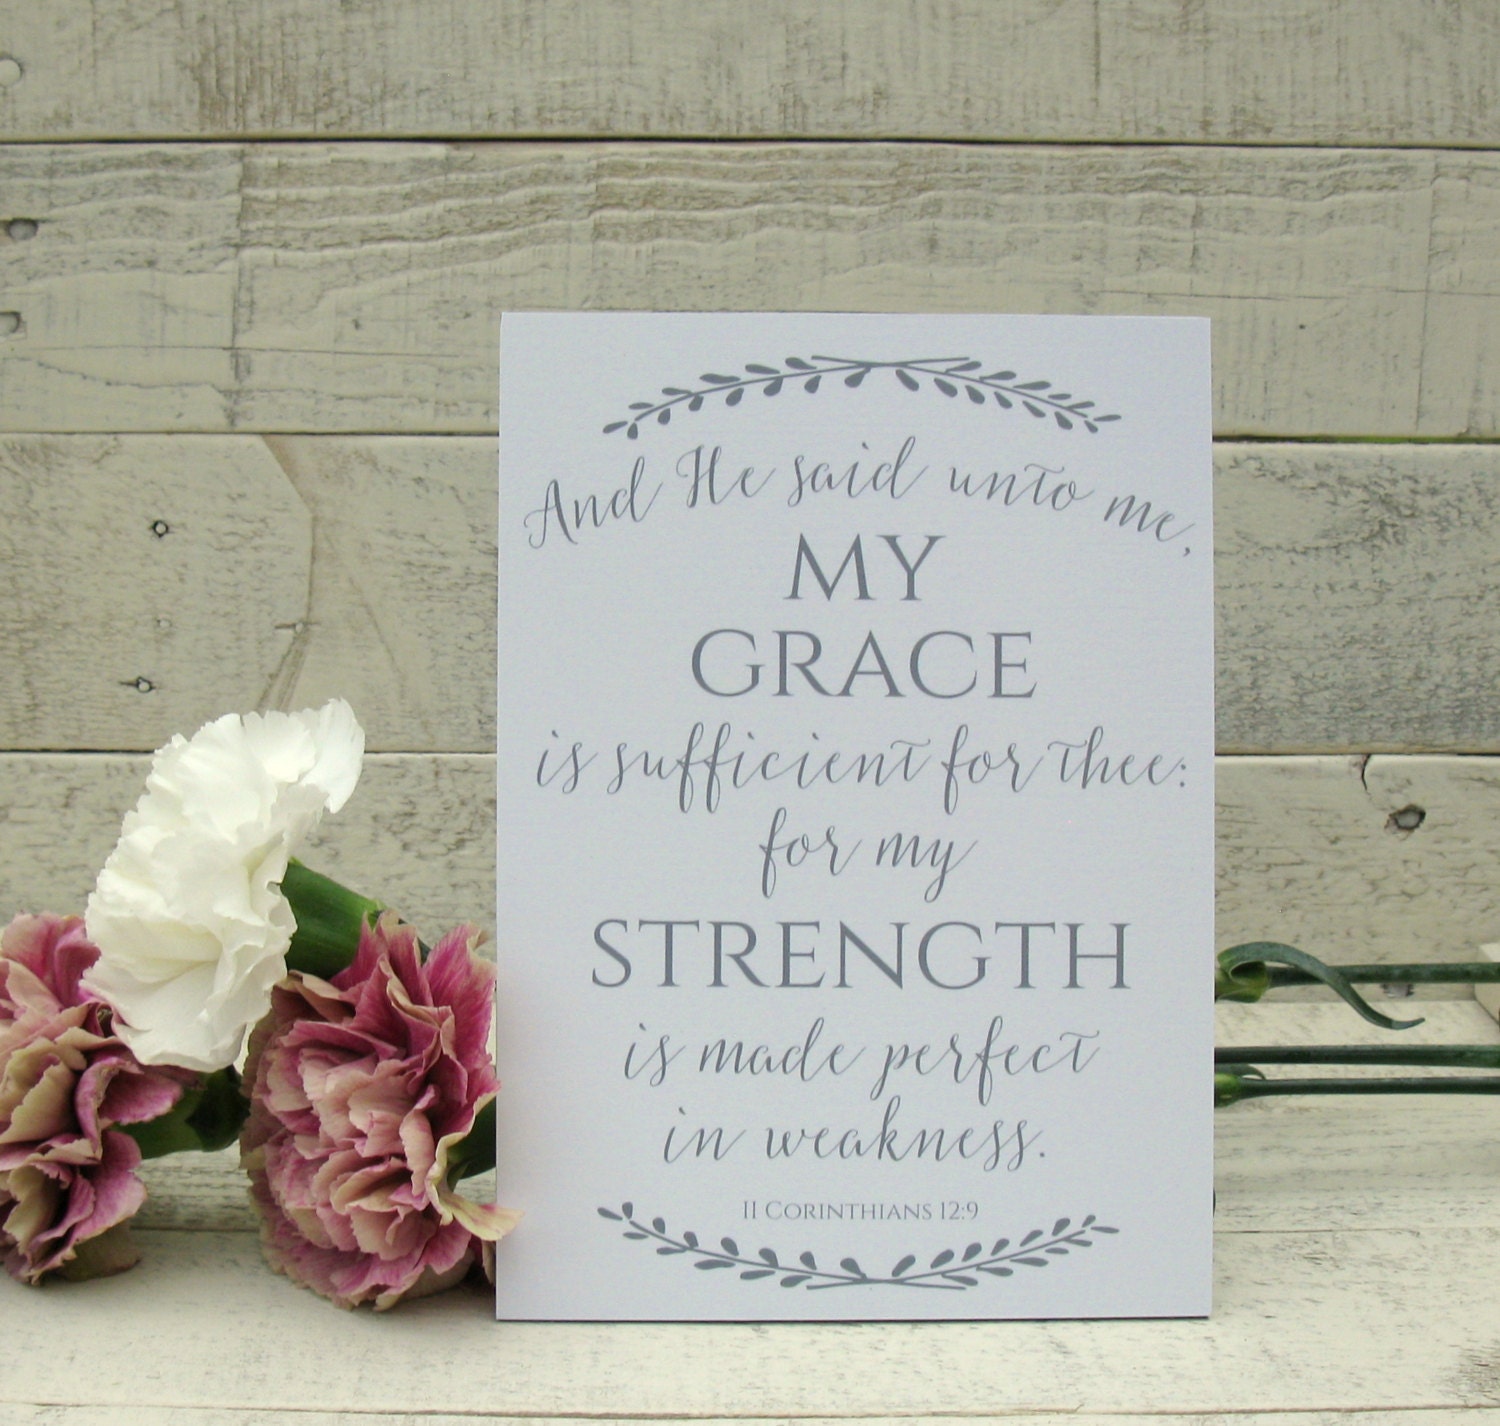 And He said unto me,
MY
GRACE
is sufficient for thee:
for my
STRENGTH
is made perfect
in weakness.
II Corinthians 12:9